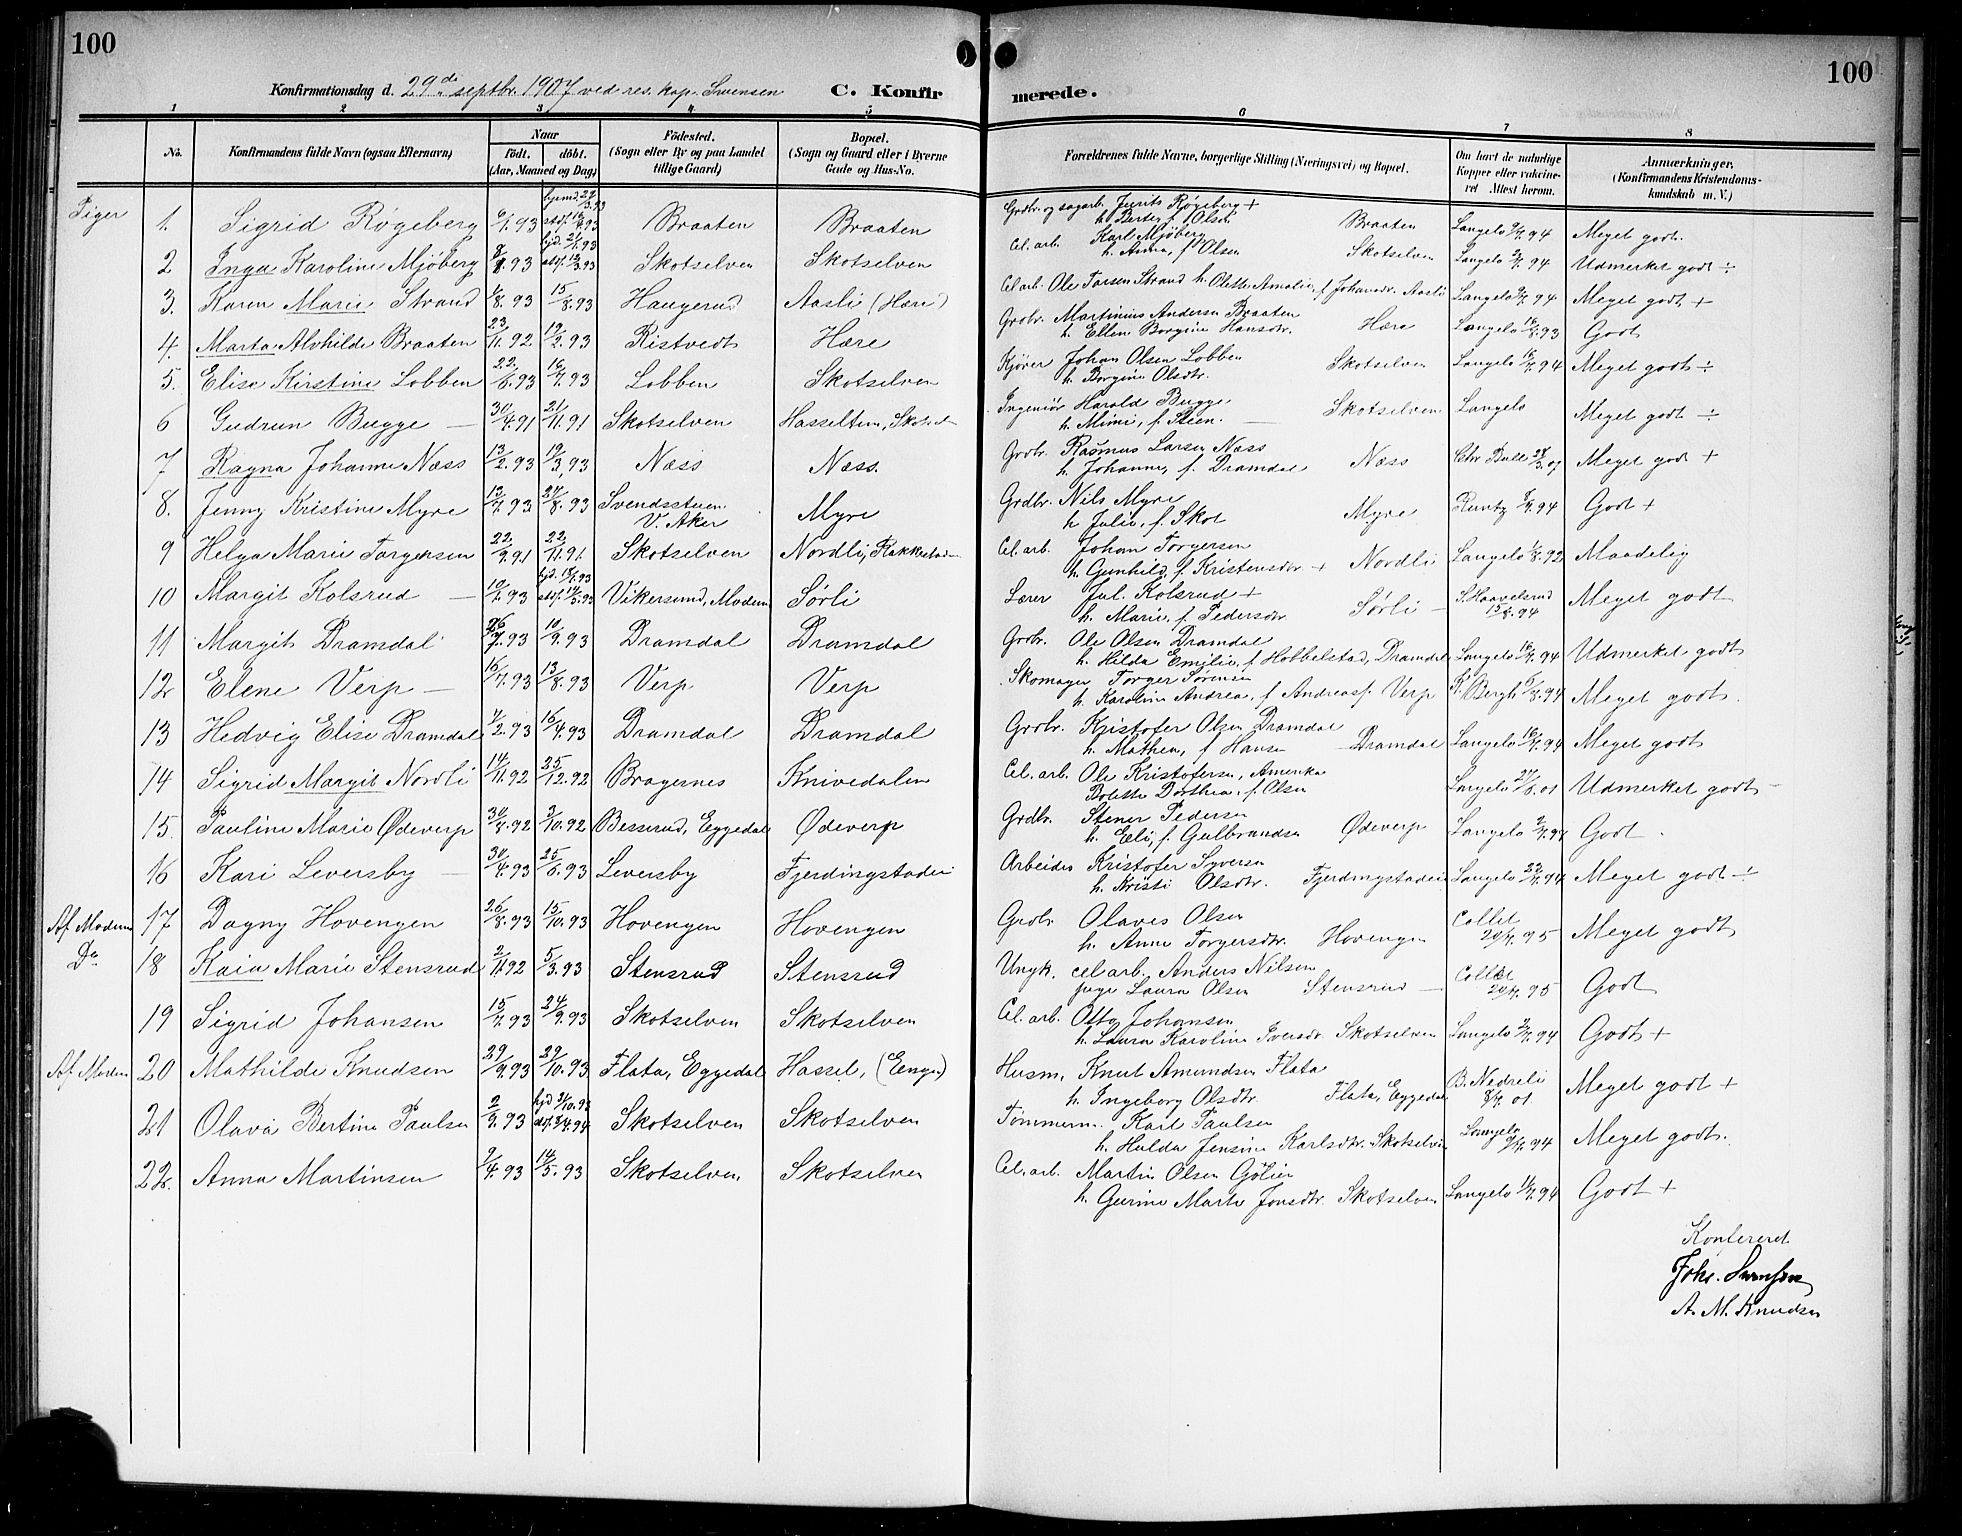 100
100
Konfirmationsdag d. 29de septbr. 1907 ved res. kap. Svensen
C. Konfirmerede.
1 2 3 4 5 6 7 8
No.
Konfirmandens fulde Navn (ogsaa Efternavn)
Naar
födt. döbt.
(Aar, Maaned og Dag)
Födested.
(Sogn eller By og paa Landet tillige Gaard)
Bopæl.
(Sogn og Gaard eller i Byerne Gade og Hus-No.
Forældrenes fulde Navne, borgerlige Stilling (Næringsvei) og Bopæl.
Om havt de naturlige Kopper eller vakcineret Attest herom.
Anmærkninger.
(Konfirmandens Kristendomskundskab m. V.)
Piger 1. Sigrid Røgeberg 93 Braaten Braaten Braaten Langelo 94 Meget godt
2 Inga Karoline Mjøberg 93 Skotselven Skotselven Cel. arb. Karl Mjøberg h. Anna, f Olsen Skotselven Langelo 94 Udmerket godt ÷
3. Karen Marie Strand 8.93 15/8.93 Haugerud Aasli (Hære) Cel. arb. Ole Larsen Strand h. Olette Amalie, f Johansdr. Aasli Langelo 94 Meget godt +
4. Marta Alvhilde Braaten 23/11.92 19/2.93 Ristvedt Hære Grdbr. Martinius Andersen Braaten h. Ellen Borgine Hansdtr. Hære Langelo 93 Godt
5. Elise Kirstine Lobben 22/6.93 16/7.93 Lobben Skotselven Kjører Johan Olsen Lobben h. Borgine Olsdtr. Skotselven Langelo 94 Meget godt ÷
6 Gudrun Bugge — 30/4.91 21/11.91 Skotselven Ingeniør Harald Bugge h. Mimi, f. Steen. Skotselven Langelo Meget godt ÷
7 Ragna Johanne Næss 13/2.93 19/3.93 Næss Næss. Grdbr. Rasmus Larsen Næss h. Johanne, f. Dramdal Næss Meget godt +
8. Jenny Kristine Myre 13/7.93 27/8.93 V. Aker Myre Grdbr. Nils Myre h. Julie, f. Skot Myre 94 Godt +
9 Helga Marie Torgersen 22/9.91 22/11.91 Skotselven Nordli, Rakkestad Cel. arb. Johan Torgersen h. Gunhild, f Kristensdr + Nordli Langelo 1/8.92 Maadelig
10 Margit Kolsrud — 93 Vikersund, Modum Sørli Lærer Jul. Kolsrud + h. Marie, f Pedersdr Sørli — S. Haavelsrud 15/8.94 Meget godt
11 Margit Dramdal 93 10/9.93 Dramdal Dramdal Grdbr. Ole Olsen Dramdal h. Hilda Emilie, f Hobbelstad, Dramdal Langelo 94 Udmerket godt
12 Elene Verp — 16/7.93 13/8.93 Verp Verp Skomager Torger Sørensen h. Karoline Andrea, f Andreasf. Verp Bergh 94 Meget godt.
13 Hedvig Elise Dramdal 2.93 16/4.93 Dramdal Dramdal Grdbr. Kristofer Olsen Dramdal h. Mathea, f Hansen Dramdal Langelo 94 Meget godt
14 Sigrid Margit Nordli 14/11.92 25/12.92 Bragernes Knivedalen Cel. arb. Ole Kristofersen, Amerika Bolette Dorthea, f. Olsen Langelo 01 Udmerket godt —
15. Pauline Marie Ødeverp 30/8.92 3/10.92 Besserud, Eggedal Ødeverp Grdbr. Stener Pedersen h. Eli, f. Gulbrandsen Ødeverp Langelo 94 Godt
16 Kari Leversby — 30/4.93 25/6.93 Leversby Fjerdingstadeie Arbeider Kristofer Syversen h. Kristi Olsdtr. Fjerdingstadeie Langelo 94 Meget godt ÷
Af Modum 17 Dagny Hovengen 26/8.93 15/10.93 Hovengen Hovengen Grdbr. Olaves Olsen h. Anne Torgersdtr. Hovengen Collet 95 Meget godt
Do 18 Kaia Marie Stensrud 2/11.92 5/3.93 Stensrud Stensrud Ungk. cel. arb. Anders Nilsen pige Laura Olsen Stensrud — Collet 95 Godt
19 Sigrid Johansen 15/7.93 24/9.93 Skotselven Skotselven Cel. arb. Otto Johansen h. Laura Karoline Iversdr Skotselven Langelo 94 Godt +
Af Modum 20 Mathilde Knudsen 29/9.93 29/10.93 Flata, Eggedal Hassel, (Enger) Husm. Knut Amundsen Flata h. Ingeborg Olsdtr. Flata, Eggedal B. Nedreli 01 Meget godt +
21 Olava Bertine Paulsen 2/9.93 Skotselven Skotselven Tømmerm. Karl Paulsen h. Hulda Jensine Karlsdtr. Skotselven Langelo 94 Meget godt.
22. Anna Martinsen 4.93 14/5.93 Skotselven Skotselven Cel. arb. Martin Olsen h. Gurine Marte Jonsdtr. Skotselven Langelo 94 Godt +
Konfereret
Johs. Svensen
A. M. Knudsen